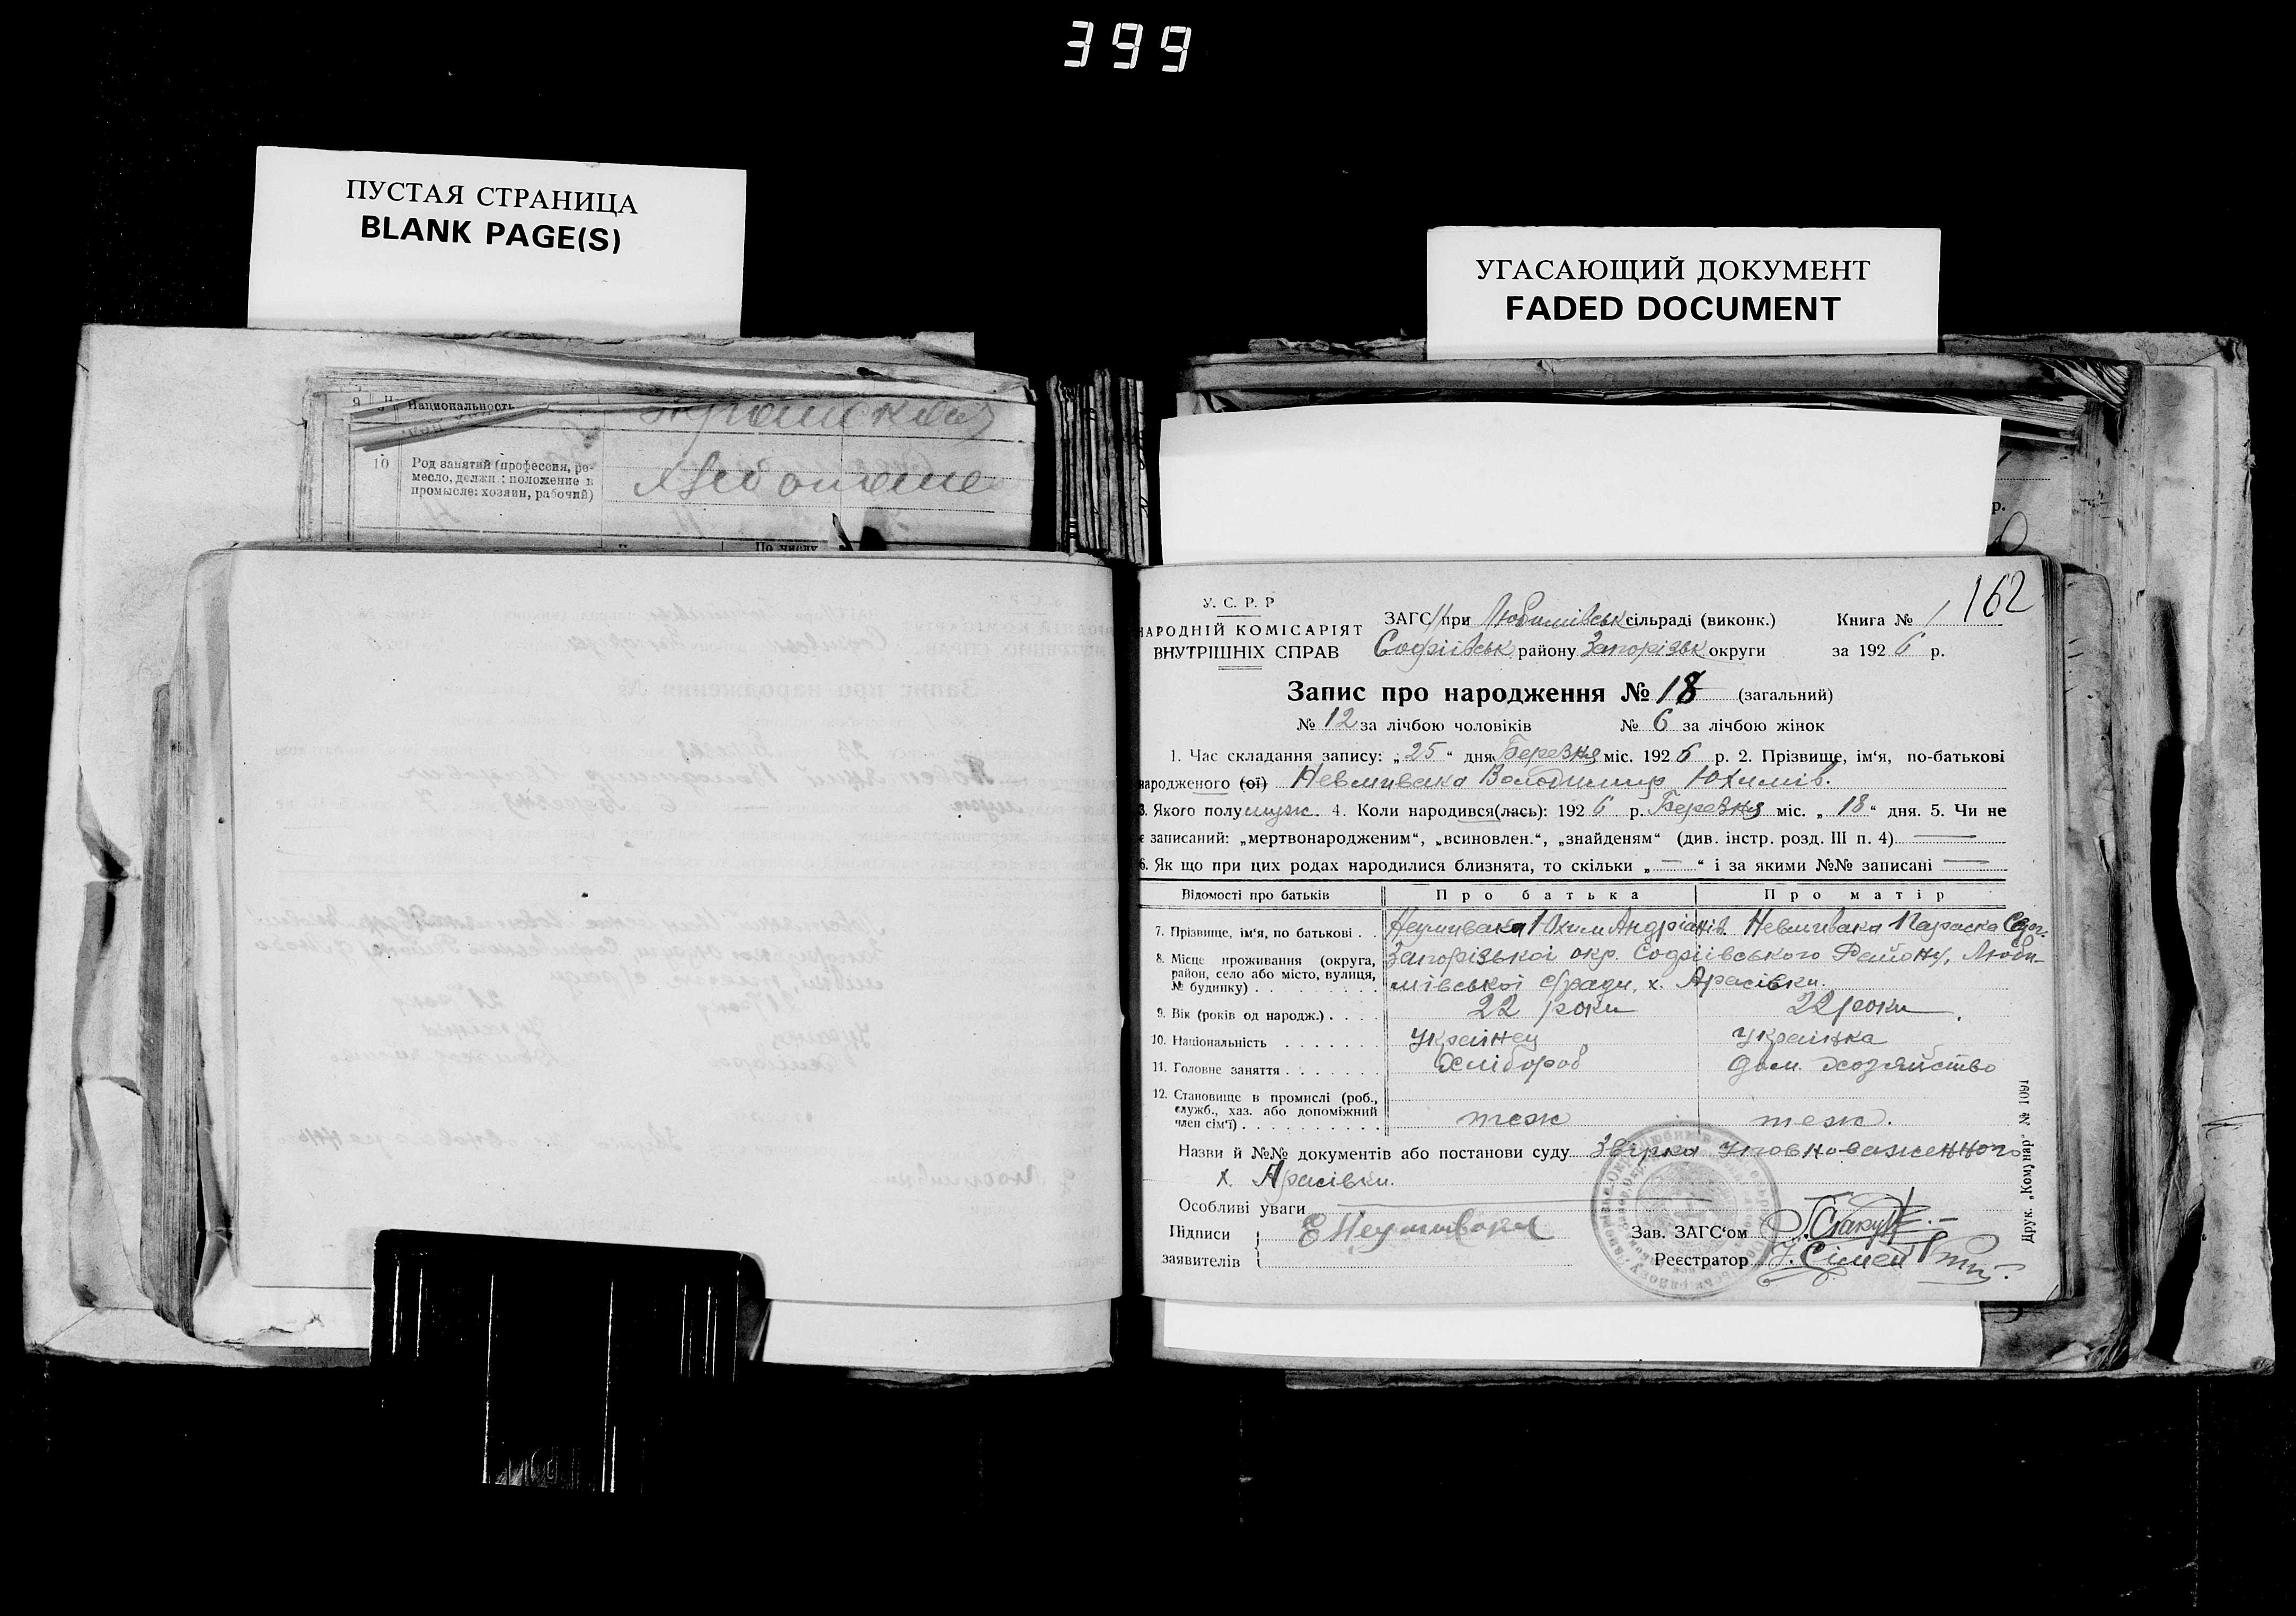 399
ПУСТАЯ СТРАНИЦА
BLANK PAGE(S)
УГАСАЮЩИЙ ДОКУМЕНТ
FADED DOCUMENT
Национальность
10 Род занятий (профессия, ре-
месло, должн.: положение в
промысле: хозяин, рабочий)
По числу
р.
162
У. С. Р. Р
НАРОДНІЙ КОМІСАРІЯТ
ВНУТРІШНІХ СПРАВ
ЗАГС при Любимівськ сільраді (виконк.) Книга № 1
Софіївськ району Запорізьк округи за 1926 р.
Запис про народження № 18 (загальний)
№ 12 за лічбою чоловіків № 6 за лічбою жінок
1. Час складання запису: „25“ дня Березня міс. 1926 р. 2. Прізвище, ім‘я, по-батькові
народженого (ої) Невмивака Володимир Юхимів.
3. Якого полу муж. 4. Коли народився(лась): 1926 р. Березня міс. „18“ дня. 5. Чи не
є записаний: „мертвонародженим“, „всиновлен.“, „знайденям“ (див. інстр. розд. III п. 4) —
6. Як що при цих родах народилися близнята, то скільки „—“ і за якими №№ записані —
Відомості про батьків Про батька Про матір
7. Прізвище, ім‘я, по батькові . . Неумивака Юхим Андріанів. Невмивака Параска
8. Місце проживання (округа,
район, село або місто, вулиця,
№ будинку) . . . . . . . . .
Запорізької окр. Софіївського Району, Люби-
мівської с/ради, х.
9. Вік (років од народж.) . . . . 22 роки 22 роки.
10. Національність . . . . . . . українец українка
11. Головне заняття . . . . . . . Хлібороб дом. хозяйство
12. Становище в промислі (роб.,
служб., хаз. або допоміжний
член сім‘ї) . . . . . . . . . . теж теж.
Назви й №№ документів або постанови суду Звірка уповноваженного
х.
Особливі уваги
Підписи
заявителів
Е Неумивака
Зав. ЗАГС‘ом
Реєстратор
Друк. „Комунар“ № 1691